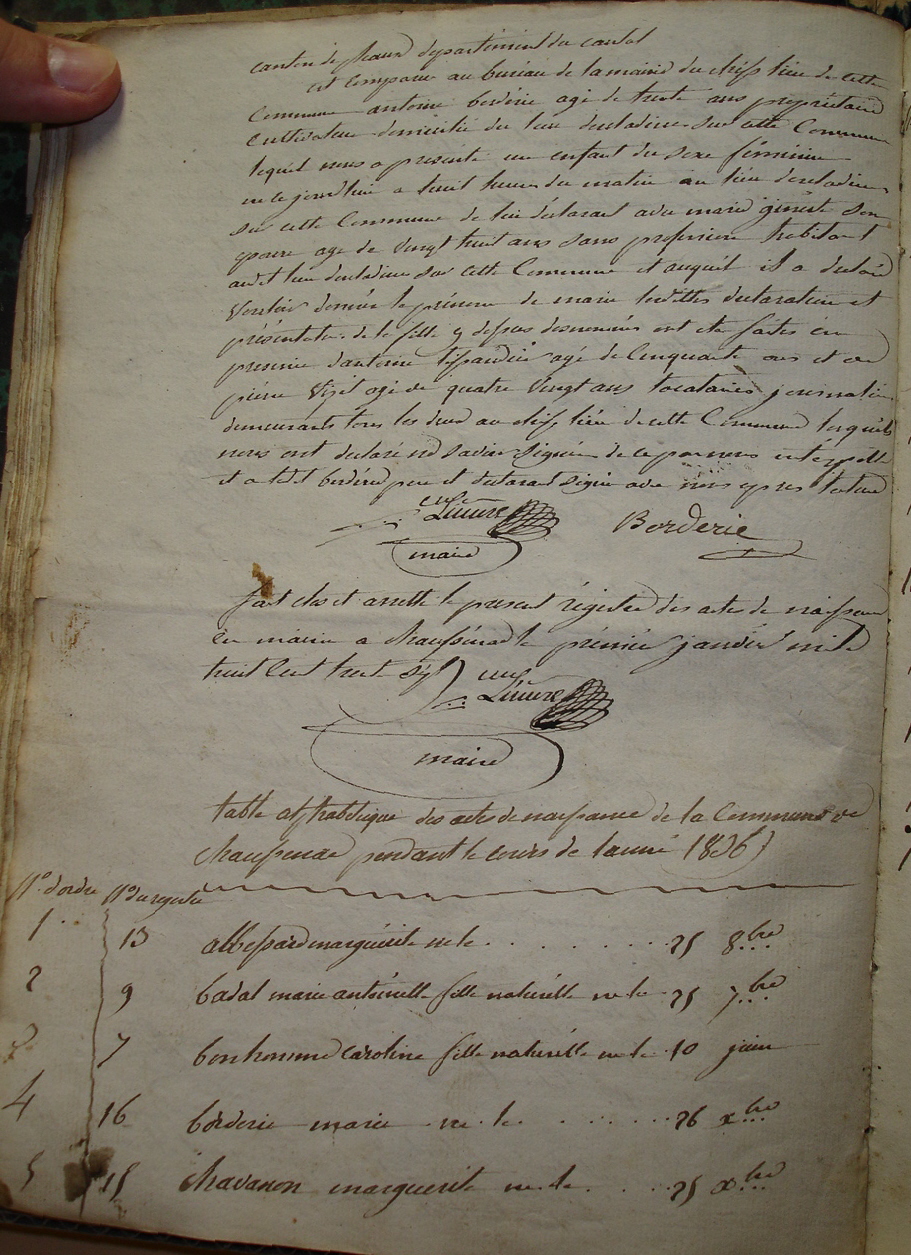 canton de pleaux departement du cantal
est comparu au bureau de la mairie du chef lieu de cette
Commune antoine borderie agé de trente ans propriétaire
Cultivateur domicilié du lieu sur cette Commune
lequel nous a présenté un enfant du sexe féminin
né ce jourdhui a huit heures du matin au lieu
sur cette Commune de lui déclarant avec marie ginéste son
epouse age de vingt huit ans sans profession habitant
audit lieu sur cette Commune et auquel il a déclaré
Vouloir donner le prénom de marie lesdittes declaration et
présentation de la fille y dessus denommée ont eté faites en
presence dantoine agé de Cinquante ans et de
pierre vizit agé de quatre vingt ans locataires journaliers
demeurants tous les deux au chef lieu de cette Commune lesquels
nous ont declaré ne savoir signer de ce par nous interpellé
et a ledit borderie pere et declarant signé avec nous apres lecture
Borderie
maire
fait clos et arretté le present régistre des actes de naissance
en mairie a chaussenac le prémier janvier mil
huit Cent trente
maire
table alfhabétique des actes de naissance de la Commune de
chaussenac pendant le cours de lanné 1836
N.o dordre N.o du registre
1 13 albessard marguérite né le . . . . . . . 25 8.bre
2 9 badal marie antoinette fille naturélle né le 25 7.bre
3 7 bonhomme caroline fille naturélle né le 10 juin
4 16 borderie marie né le . . . . . . 26 x.bre
5 15 chavanon marguerite né le . . . . 25 x.bre